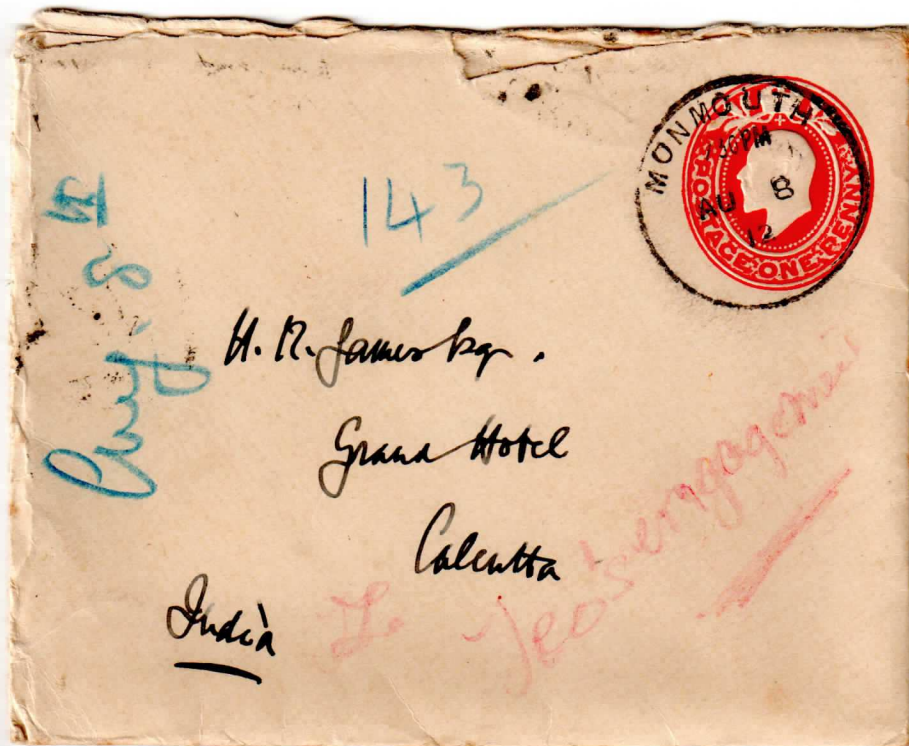 MONMOUTH
7 30 PM
AU 8
12
POSTAGE ONE PENNY
143
Aug. 8
H. R. James Esq.
Grand Hotel
Calcutta
India
Leo's engagement